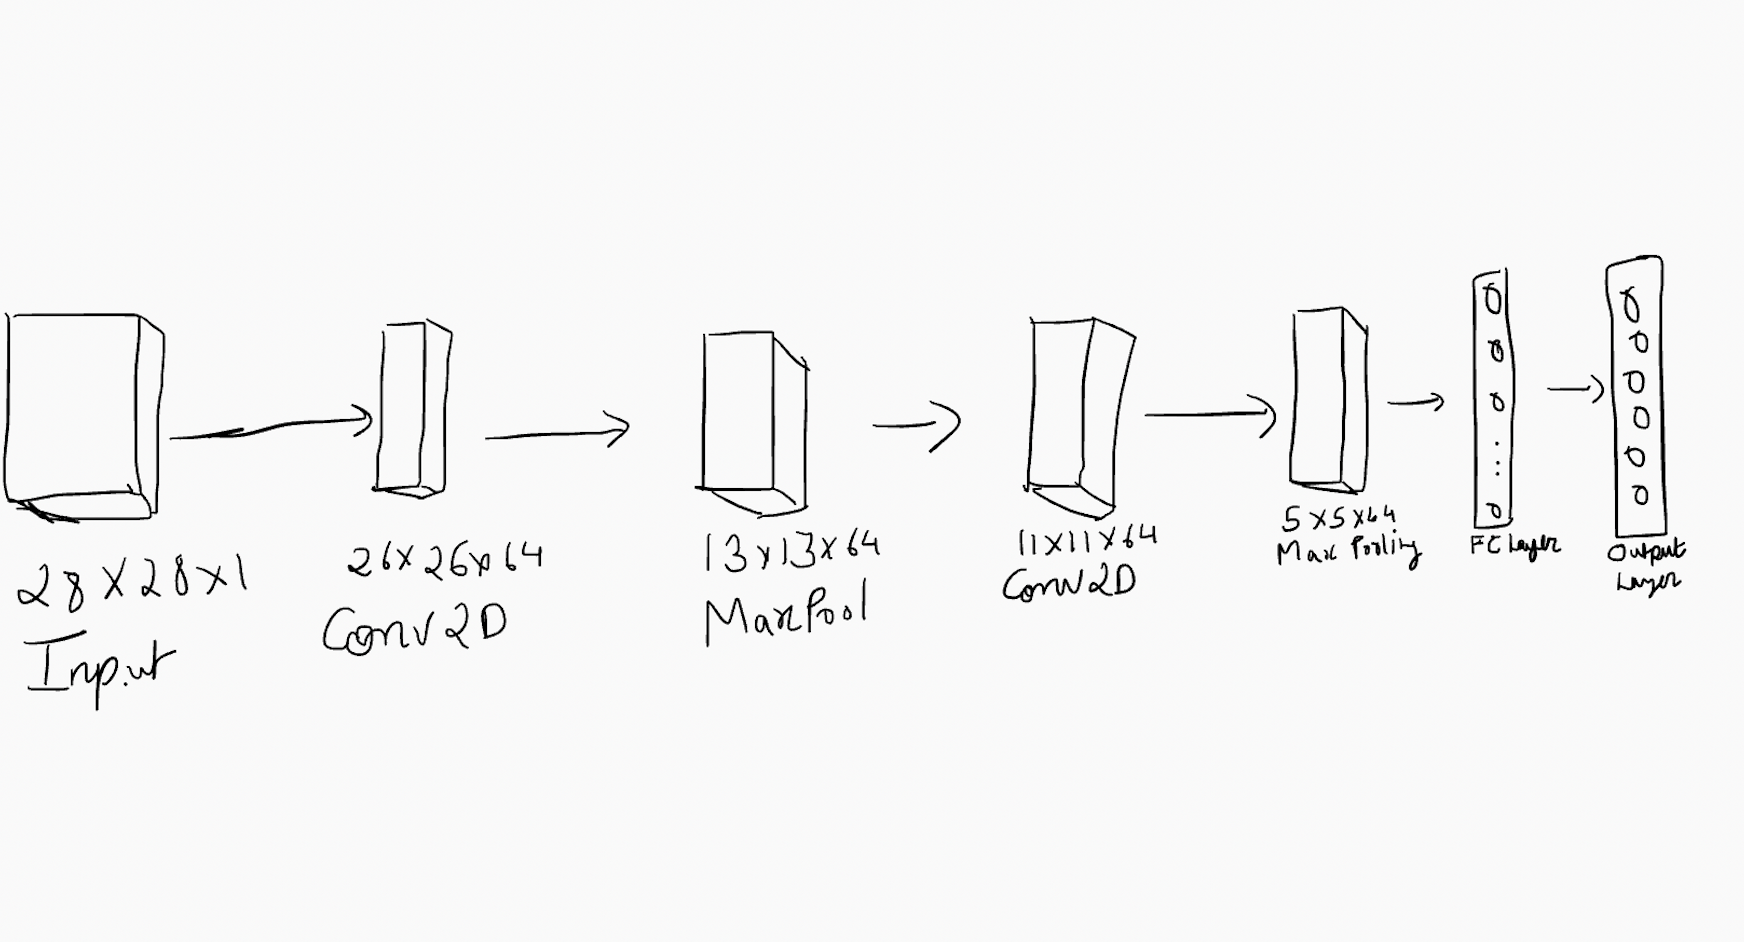 28 X 28 x 1
Input
26x 26x 64
Conv2D
13x13x64
MaxPool
11x11x64
Conv2D
5x5x64
Max Pooling
FC Layer
Output
Layer